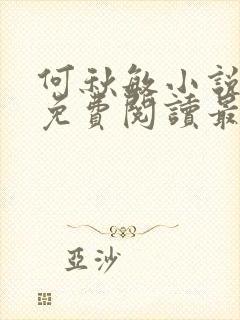 何秋敏小説
免費閱讀最
亞沙